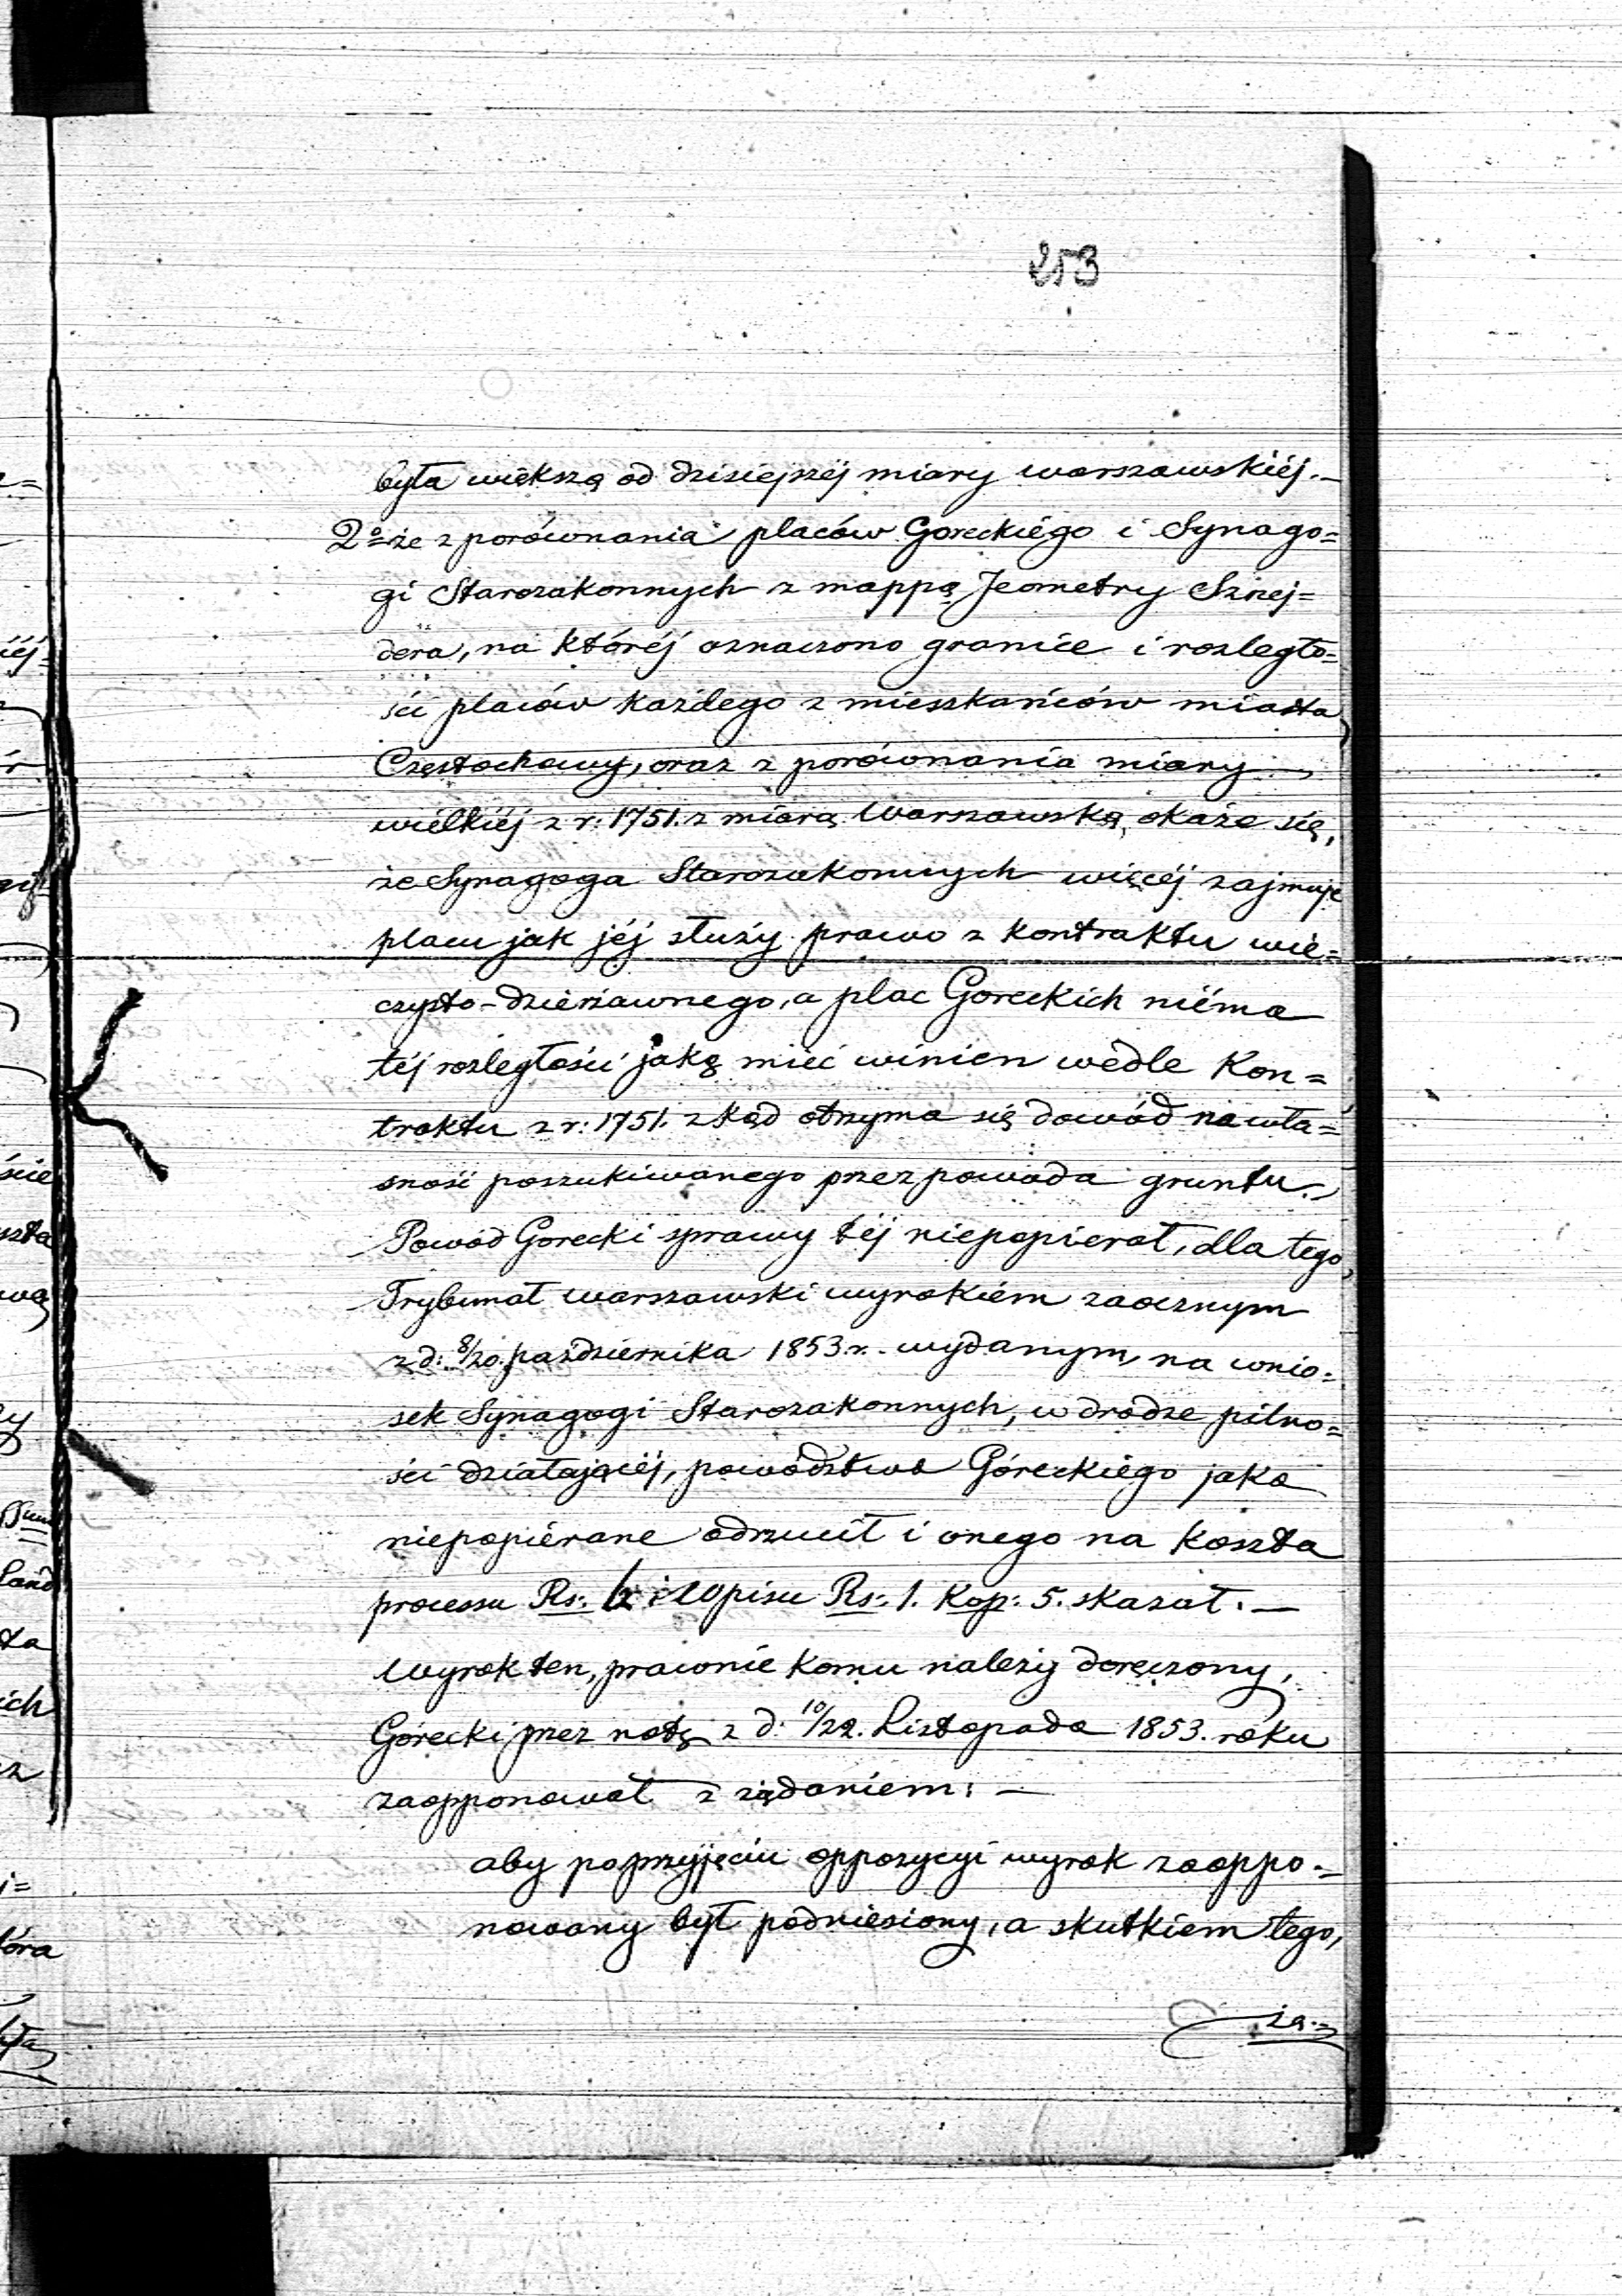 253
była większą od dzisiejszéj miary warszawskiéj.—
2º że z porównania placów Goreckiégo i Synago=
gi Starozakonnych z mappą Jeometry Sznej=
dera, na któréj oznaczono granice i rozległo=
ści placów każdego z mieszkańców miasta
Częstochowy, oraz z porównania miary
wielkiéj z r: 1751. z miarą Warszawską, okaże się,
że Synagoga Starozakonnych więcéj zajmuje
placu jak jéj służy prawo z kontraktu wie=
czysto-dzierżawnego, a plac Goreckich niéma
téj rozległości jaką mieć winien wedle Kon=
traktu z r: 1751. zkąd otrzyma się dowód na wła=
sność poszukiwanego przez powoda gruntu.
Powód Gorecki sprawy téj niepopierał, dla tego
Trybunał warszawski wyrokiem zaocznym
z d: 8/20. października 1853 r. wydanym, na wnio=
sek Synagogi Starozakonnych, w drodze pilno=
ści działającéj, powództwo Góreckiégo jako
niepopiérane odrzucił i onego na koszta
processu Rs: i wpisu Rs: 1. Kop: 5. skazał.—
Wyrok ten, prawnie komu należy doręczony,
Górecki przez notę z d: 10/22. Listopada 1853. roku
zaopponował z żądaniem: —
aby po przyjęciu oppozycyi wyrok zaoppo=
nowany był podniesiony, a skutkiem tego,